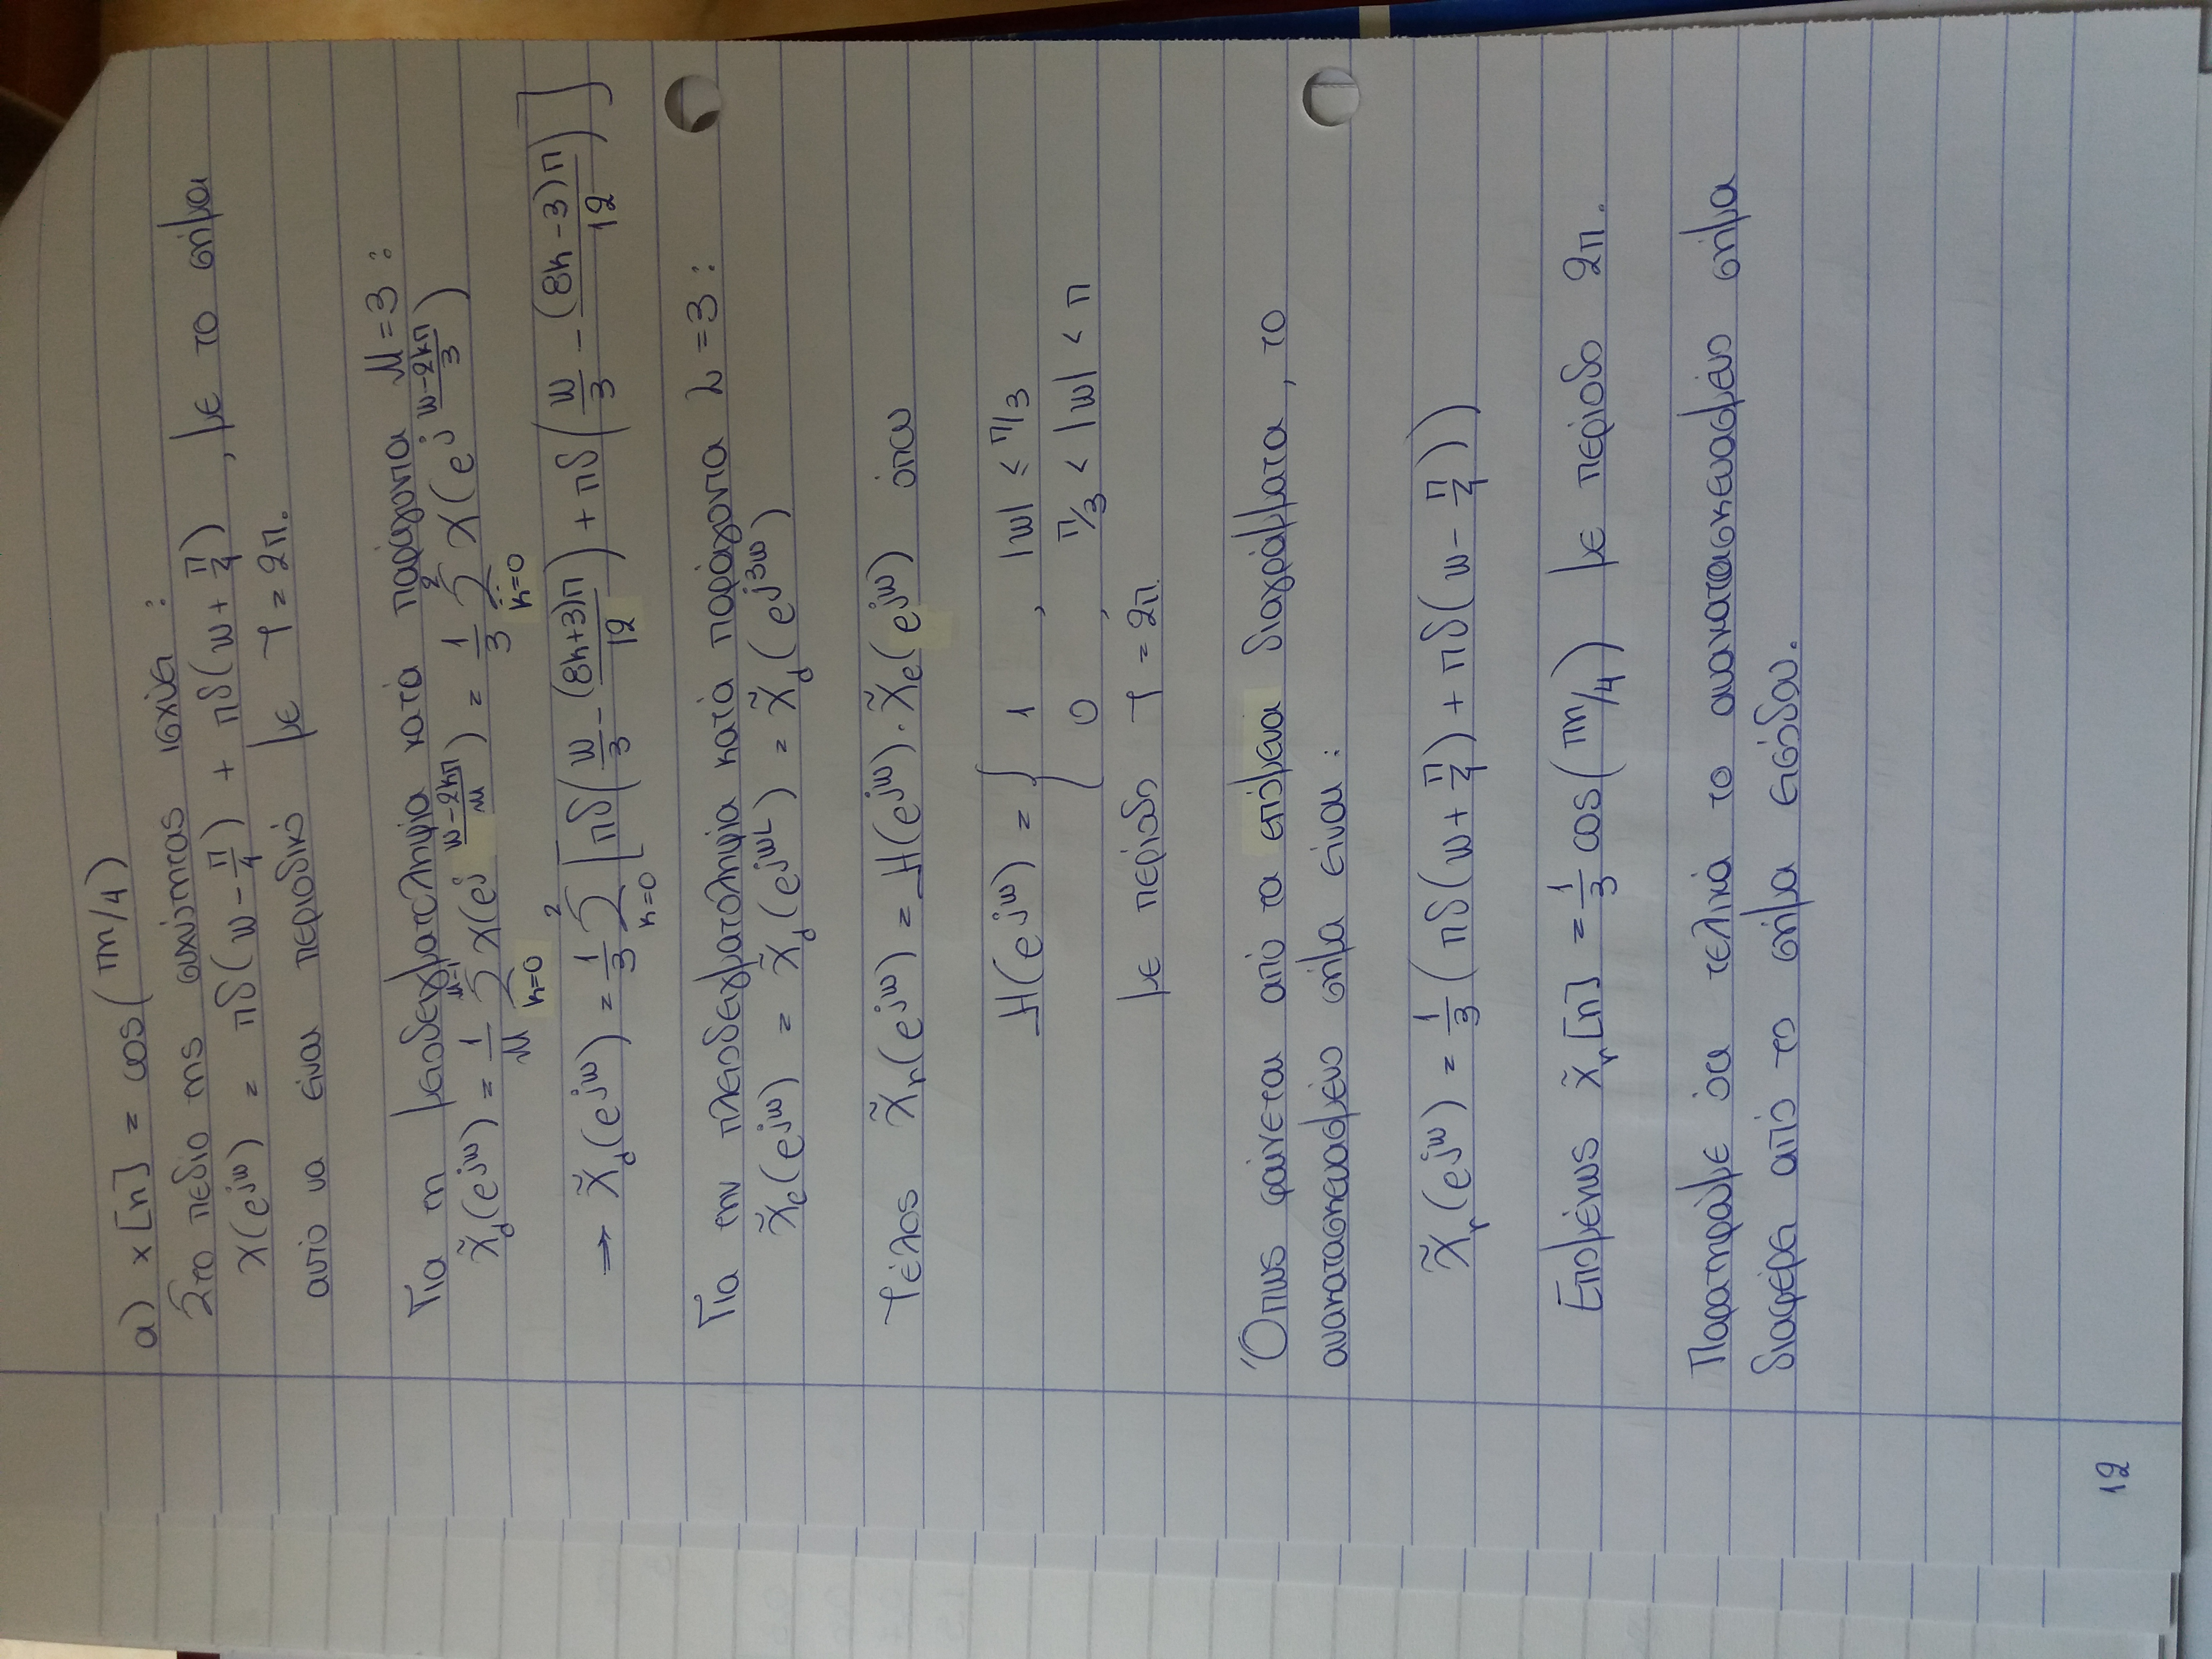 α) x[n] = cos(πn/4)
Στο πεδίο της συχνότητας ισχύει :
X(e^jω) = πδ(ω - π/4) + πδ(ω + π/4) , με το σήμα
αυτό να είναι περιοδικό με T = 2π.
Για τη μειοδειγματοληψία κατά παράγοντα M = 3 :
X̃_d(e^jω) = 1/M Σ_{k=0}^{M-1} X(e^{j (ω-2kπ)/M}) = 1/3 Σ_{k=0}^{2} X(e^{j (ω-2kπ)/3})
⇒ X̃_d(e^jω) = 1/3 Σ_{k=0}^{2} [πδ(ω/3 - (8k+3)π/12) + πδ(ω/3 - (8k-3)π/12)]
Για την πλειοδειγματοληψία κατά παράγοντα L = 3 :
X̃_e(e^jω) = X̃_d(e^jωL) = X̃_d(e^j3ω)
Τέλος X̃_r(e^jω) = H(e^jω) · X̃_e(e^jω) όπου
H(e^jω) = { 1 , |ω| ≤ π/3
0 , π/3 < |ω| < π
με περίοδο T = 2π.
Όπως φαίνεται από τα επόμενα διαγράμματα, το
ανακατασκευασμένο σήμα είναι :
X̃_r(e^jω) = 1/3 (πδ(ω + π/4) + πδ(ω - π/4))
Επομένως x̃_r[n] = 1/3 cos(πn/4) με περίοδο 2π.
Παρατηρούμε ότι τελικά το ανακατασκευασμένο σήμα
διαφέρει από το σήμα εισόδου.
12